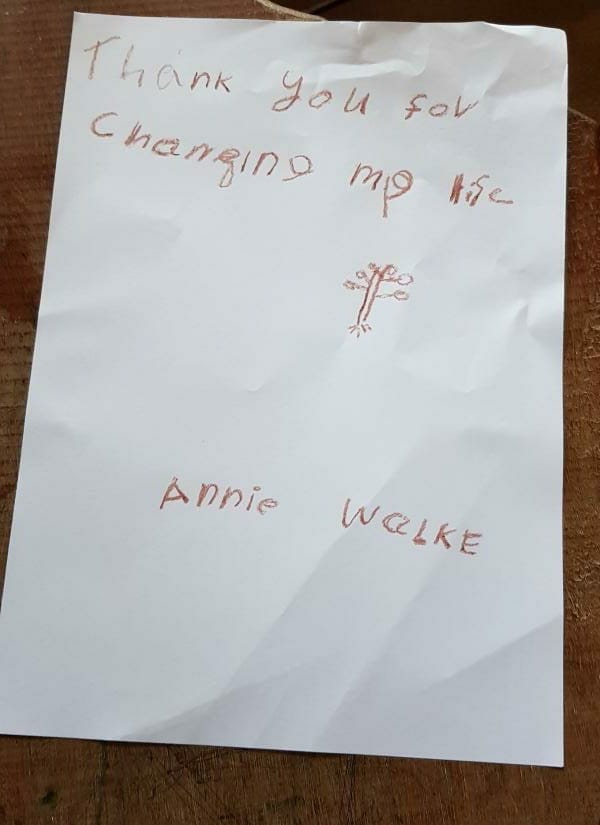 Thank you for
Changing my life
Annie WALKE